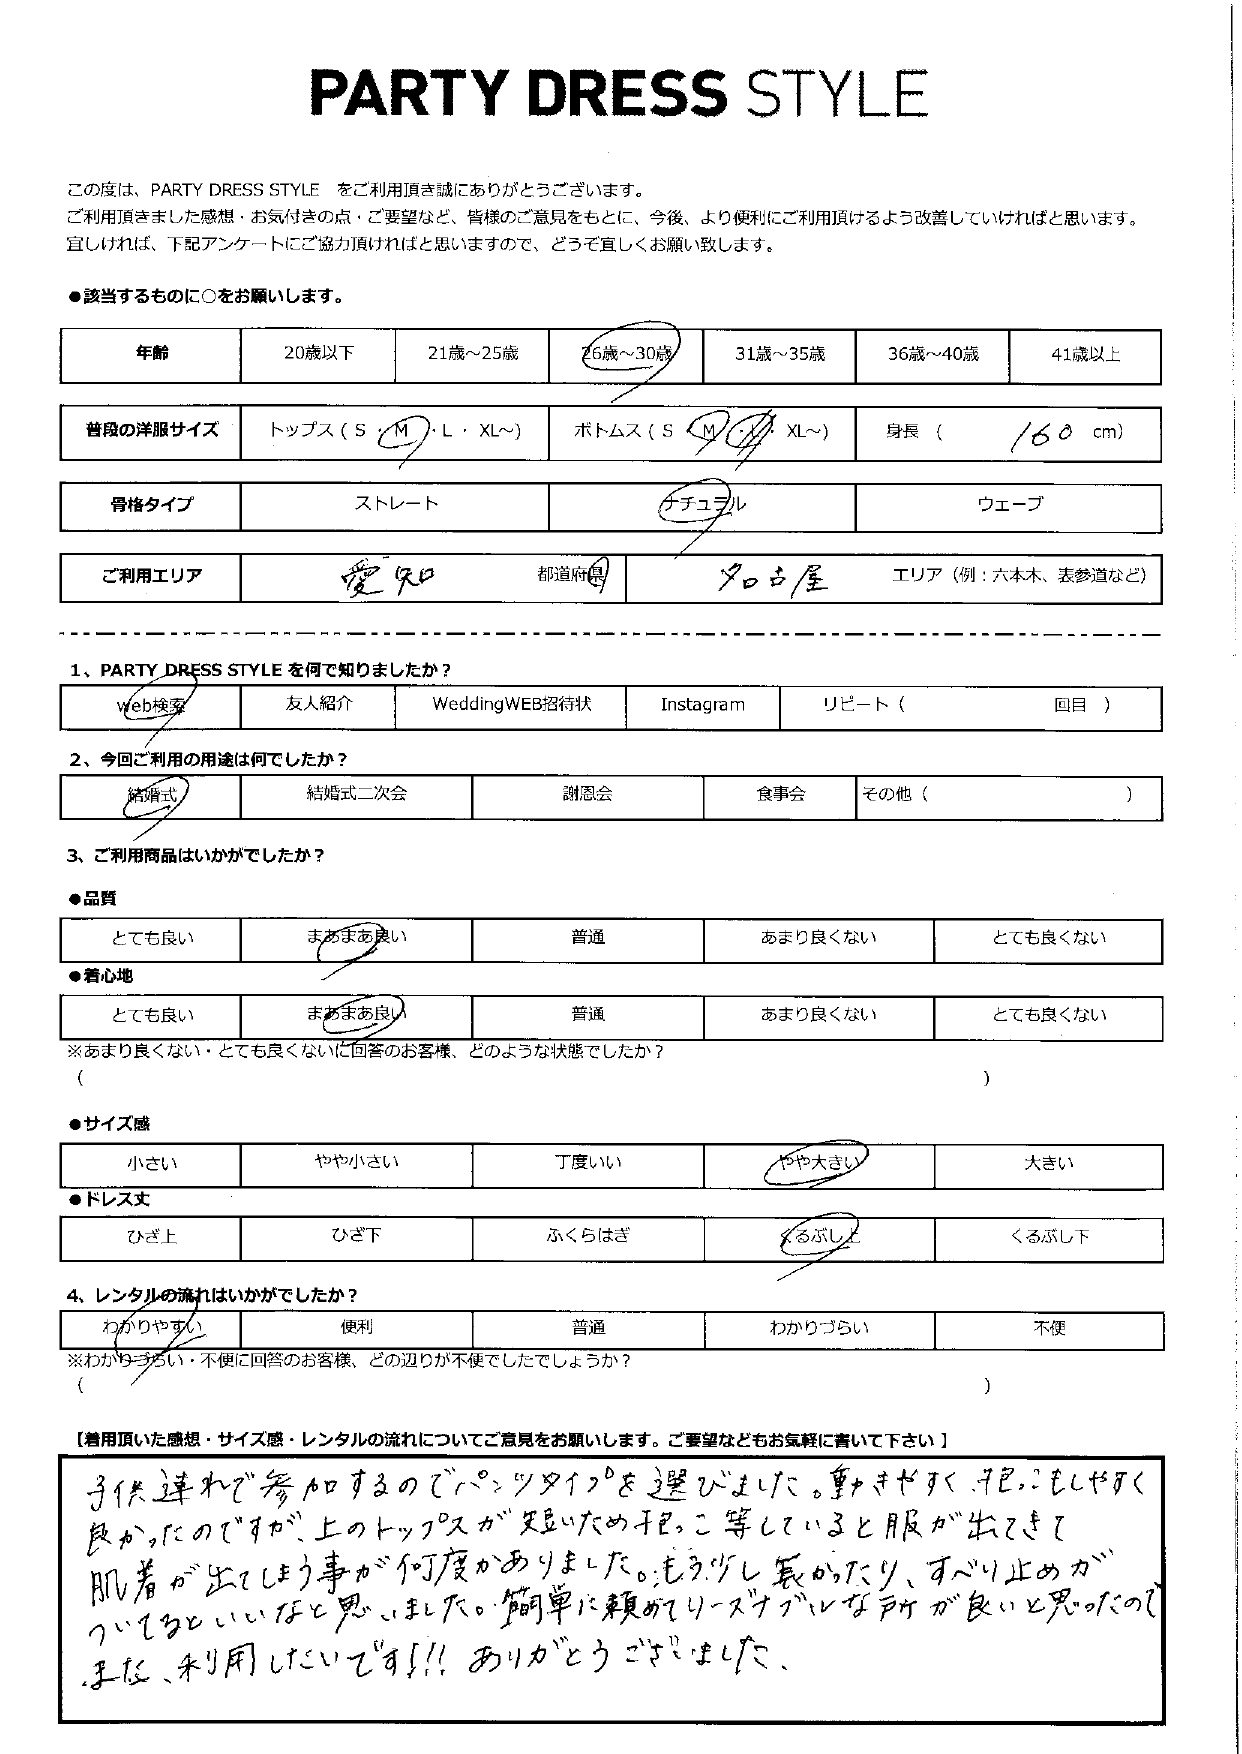 PARTY DRESS STYLE
この度は、PARTY DRESS STYLE をご利用頂き誠にありがとうございます。
ご利用頂きました感想・お気付きの点・ご要望など、皆様のご意見をもとに、今後、より便利にご利用頂けるよう改善していければと思います。
宜しければ、下記アンケートにご協力頂ければと思いますので、どうぞ宜しくお願い致します。
●該当するものに○をお願いします。
年齢 20歳以下 21歳～25歳 26歳～30歳 31歳～35歳 36歳～40歳 41歳以上
普段の洋服サイズ トップス（ S ・ M ・ L ・ XL～） ボトムス（ S ・ M ・ L ・ XL～） 身長 （ 160 cm）
骨格タイプ ストレート ナチュラル ウェーブ
ご利用エリア 愛知 都道府県 名古屋 エリア（例：六本木、表参道など）
1、PARTY DRESS STYLE を何で知りましたか？
web検索 友人紹介 WeddingWEB招待状 Instagram リピート（ 回目 ）
2、今回ご利用の用途は何でしたか？
結婚式 結婚式二次会 謝恩会 食事会 その他（ ）
3、ご利用商品はいかがでしたか？
●品質
とても良い まあまあ良い 普通 あまり良くない とても良くない
●着心地
とても良い まあまあ良い 普通 あまり良くない とても良くない
※あまり良くない・とても良くないに回答のお客様、どのような状態でしたか？
（ ）
●サイズ感
小さい やや小さい 丁度いい やや大きい 大きい
●ドレス丈
ひざ上 ひざ下 ふくらはぎ くるぶし上 くるぶし下
4、レンタルの流れはいかがでしたか？
わかりやすい 便利 普通 わかりづらい 不便
※わかりづらい・不便に回答のお客様、どの辺りが不便でしたでしょうか？
（ ）
【着用頂いた感想・サイズ感・レンタルの流れについてご意見をお願いします。ご要望などもお気軽に書いて下さい 】
子供連れで参加するのでパンツタイプを選びました。動きやすく、抱っこもしやすく
良かったのですが、上のトップスが短いため抱っこ等していると服が出てきて
肌着が出てしまう事が何度かありました。もう少し長かったり、すべり止めが
ついてるといいなと思いました。簡単に頼めてリーズナブルな所が良いと思ったので
また、利用したいです!!! ありがとうございました、